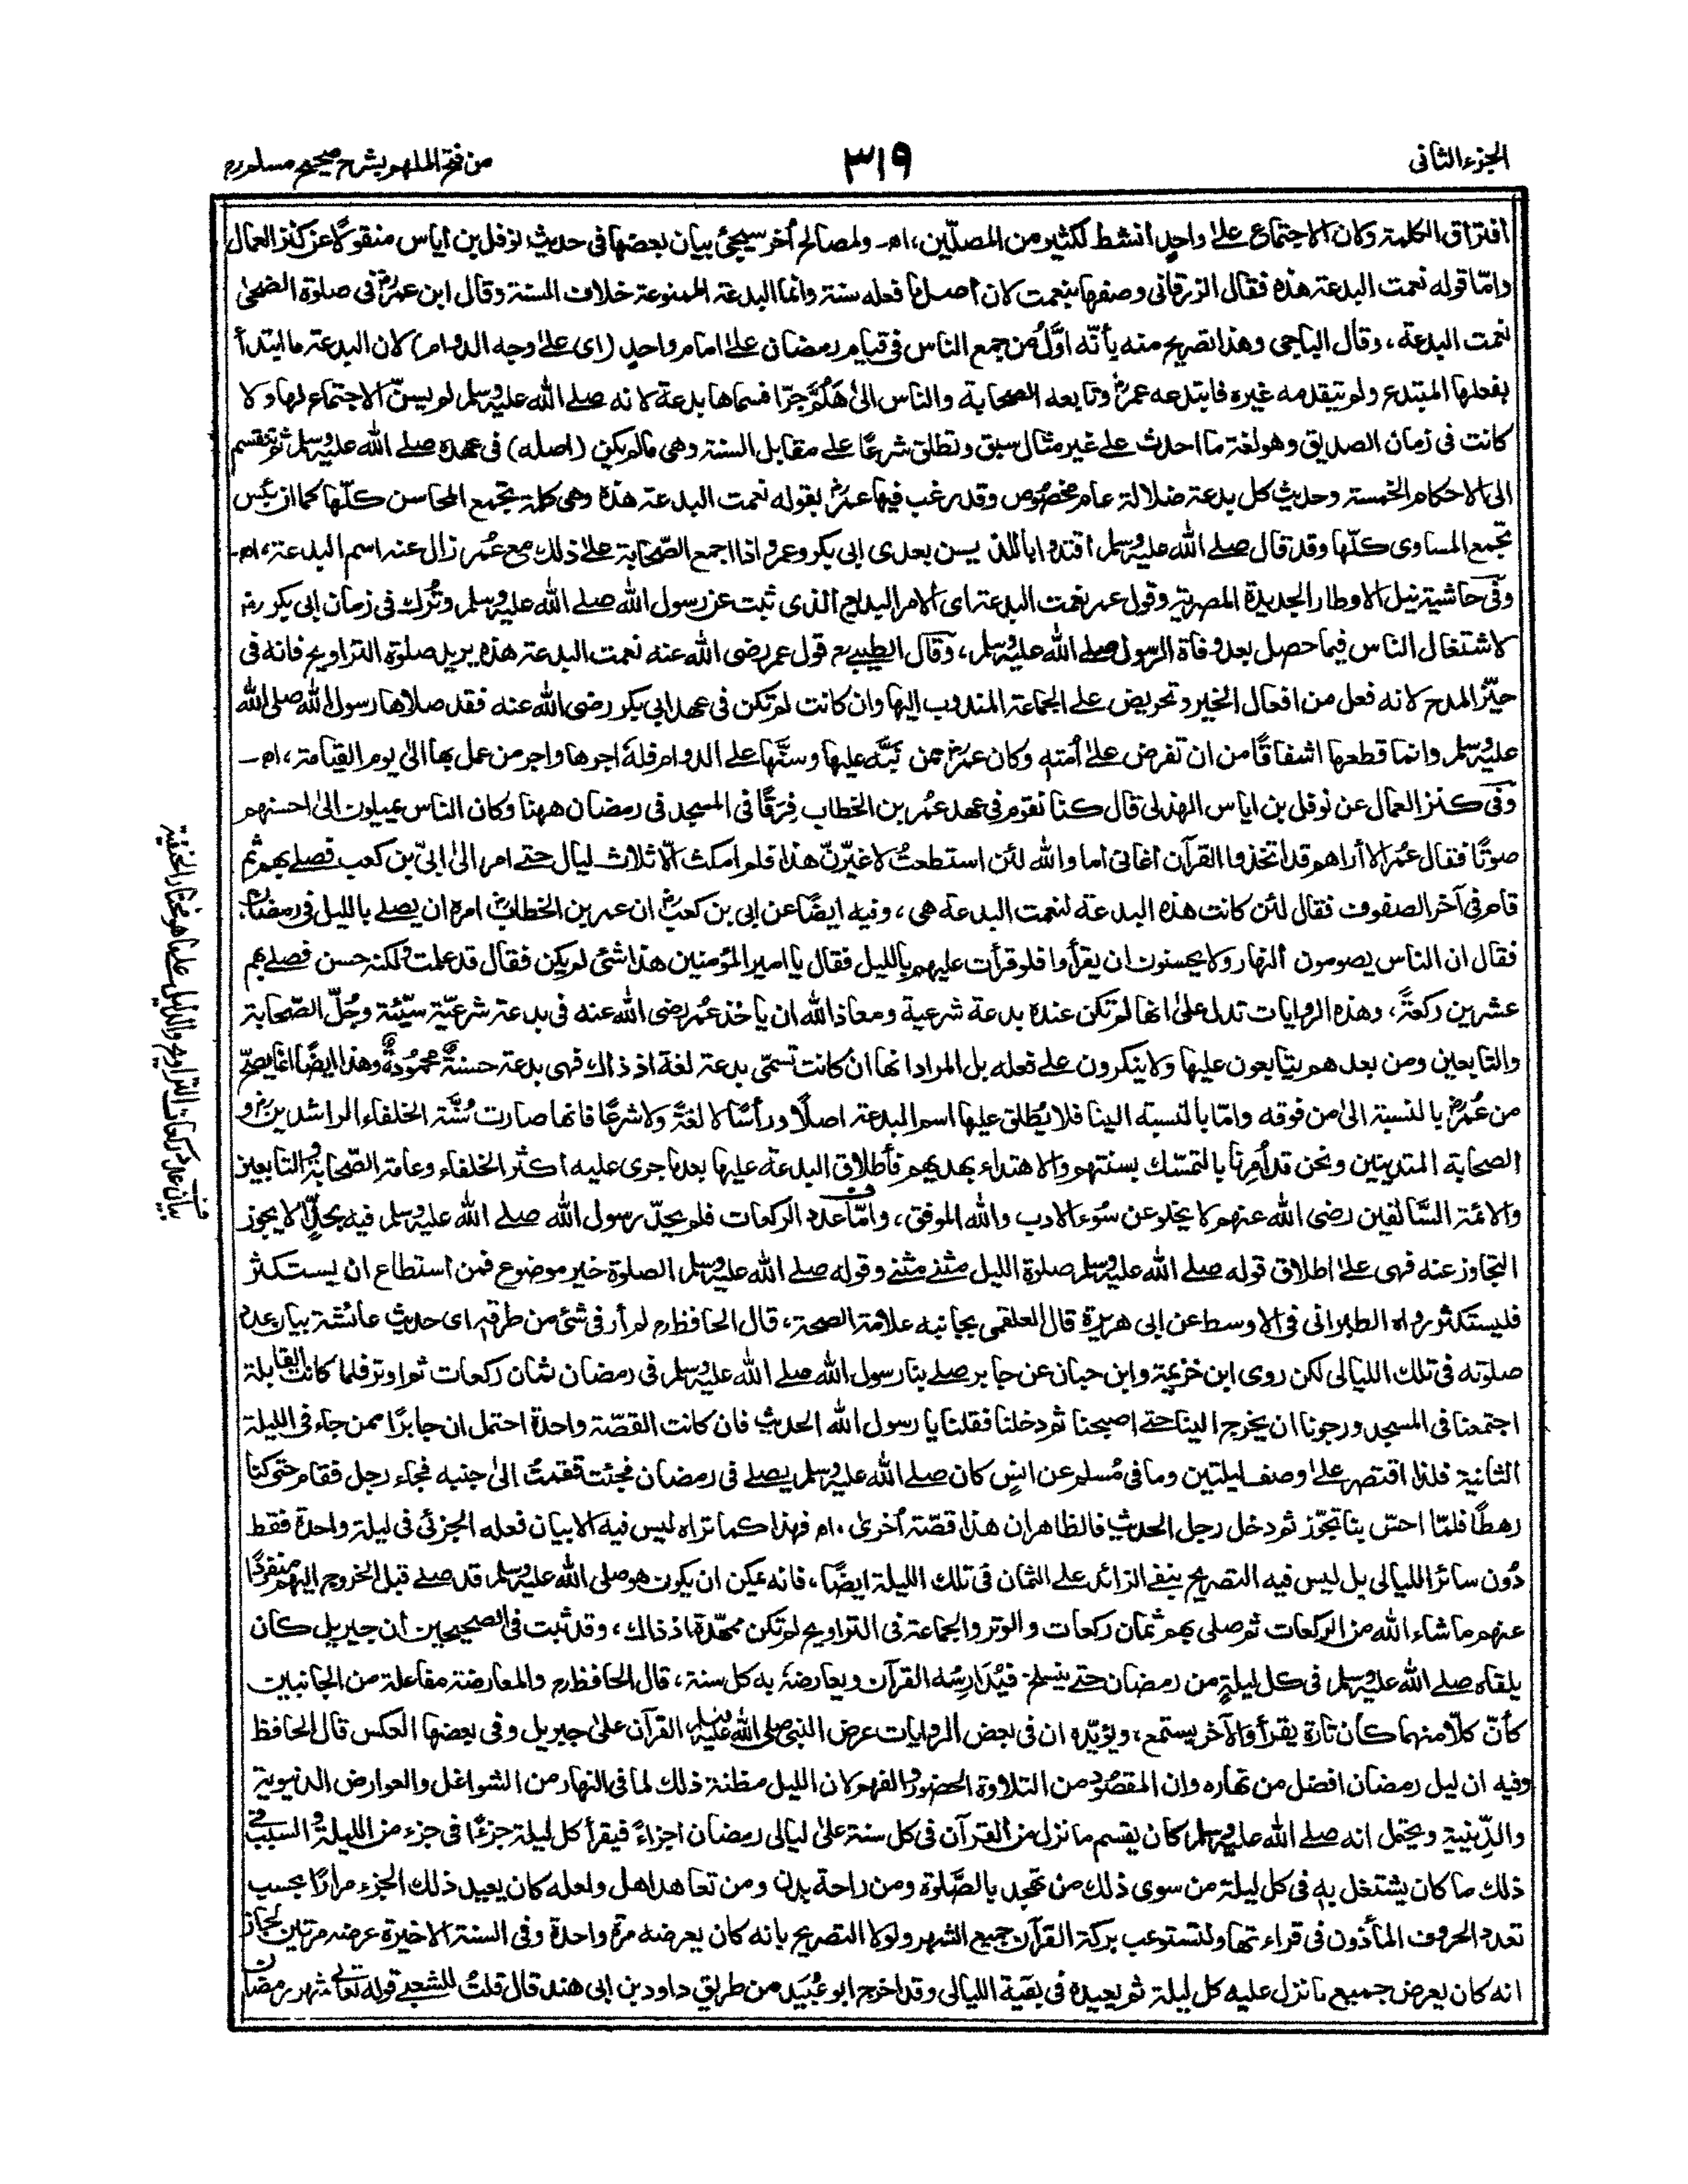 الجزء الثانى
٣١٩
من فتح الملهم بشرح صحيح مسلم رح
افتراق الكلمة وكان الاجتماع على واحد انشط لكثير من المصلّين، اه ـ ولمصالح أخر سيجئ بيان بعضها فى حديث نوفل بن اياس منقولًا عن كنز العمال
وامّا قوله نعمت البدعة هذه فقال الزرقانى وصفها بنعمت لان اصل ما فعله سنة وانما البدعة الممنوعة خلاف السنة وقال ابن عمرؓ فى صلوة الضحىٰ
نعمت البدعة، وقال الباجى وهذا تصريح منه بأنّه اوّلُ من جمع الناس فى قيام رمضان علىٰ امام واحدٍ (اى علىٰ وجه الدوام) لان البدعة ما ابتدأ
بفعلها المبتدع ولم يتقدمه غيره فابتدعه عمرؓ وتابعه الصحابة والناس الىٰ هَلُمَّ جرّا فسماها بدعة لانه صلے الله عليه وسلم لم يسنّ الاجتماع لها ولا
كانت فى زمان الصديق وهو لغة ما احدث على غير مثال سبق وتطلق شرعًا على مقابل السنة وهى مالم يكن (اصله) فى عهده صلے الله عليه وسلم ثم تنقسم
الى الاحكام الخمسة وحديث كل بدعة ضلالة عام مخصُوص وقد رغب فيها عمرؓ بقوله نعمت البدعة هذه وهى كلمة تجمع المحاسن كلّها كما ان بئس
تجمع المساوى كلّها وقد قال صلے الله عليه وسلم اقتدوا باللذين من بعدى ابى بكر وعمر واذا اجمع الصّحابة علىٰ ذلك مع عُمر زال عنه اسم البدعة، اه ـ
وفى حاشية نيل الاوطار الجديدة المصرية وقول عمر نعمت البدعة اى الامر البديع الذى ثبت عن رسول الله صلے الله عليه وسلم وتُرك فى زمان ابى بكر رضـ
لاشتغال الناس فيما حصل بعد وفاة الرسول صلے الله عليه وسلم، وقال الطيبے رح قول عمر رضى الله عنه نعمت البدعة هذه يريد صلوة التراويح فانه فى
حيّز المدح لانه فعل من افعال الخير وتحريض على الجماعة المندوب اليها وان كانت لم تكن فى عهد ابى بكر رضى الله عنه فقد صلاها رسول الله صلى الله
عليه وسلم وانما قطعها اشفاقًا من ان تفرض علىٰ أمته وكان عمرؓ ممن نبّه عليها وسنّها على الدوام فلهٗ اجرها واجر من عمل بها الىٰ يوم القيامة، اه ـ
وفى كنز العمال عن نوفل بن اياس الهذلى قال كنا نقوم فى عهد عمُر بن الخطاب فِرَقًا فى المسجد فى رمضان ههنا وكان الناس يميلون الىٰ احسنهم
صوتًا فقال عُمر الا أراهم قد اتخذوا القرآن اغانى اما والله لئن استطعتُ لاغيّرنّ هذا فلم امكث الّا ثلاث ليال حتے امر الىٰ ابىّ بن كعب فصلے بهم ثم
قام فى آخر الصفوف فقال لئن كانت هذه البدعة لنعمت البدعة هى، وفيه ايضًا عن ابى بن كعبؓ ان عمر بن الخطابؓ امره ان يصلے بالليل فى رمضان
فقال ان الناس يصومون النهار ولا يحسنون ان يقرأوا فلو قرأت عليهم بالليل فقال يا امير المؤمنين هذا شئ لم يكن فقال قد علمتُ ولكنه حسن فصلے بهم
عشرين ركعةً، وهذه الروايات تدل علىٰ انها لم تكن عنده بدعة شرعية ومعاذ الله ان ياخذ عُمر رضى الله عنه فى بدعة شرعيّة سيّئة وجُلّ الصّحابة
والتابعين ومن بعدهم يتابعون عليها ولا ينكرون على فعله بل المراد انها ان كانت تسمّى بدعة لغة اذ ذاك فهى بدعة حسنةٌ محمُودةٌ وهذا ايضًا انما يصحّ
من عُمرؓ بالنسبة الىٰ من فوقه وامّا بالنسبة الينا فلا يُطلق عليها اسم البدعة اصلًا ورأسًا لا لغةً ولا شرعًا فانها صارت سُنّة الخلفاء الراشدين رضـ و
الصحابة المتدينين ونحن قد أُمِرنا بالتمسّك بسنتهم والاهتداء بهديهم فأطلاق البدعة عليها بعد ما جرى عليه اكثر الخلفاء وعامة الصّحابة والتابعين
والائمة السّالفين رضى الله عنهم لا يخلو عن سُوء الادب والله الموفق، وامّا عدد الركعات فلم يحدّ رسول الله صلے الله عليه وسلم فيه بحدٍّ لا يجوز
التجاوز عنه فهى علىٰ اطلاق قوله صلے الله عليه وسلم صلوة الليل مثنے مثنے وقوله صلے الله عليه وسلم الصلوة خير موضوع فمن استطاع ان يستكثر
فليستكثر رواه الطبرانى فى الاوسط عن ابى هريرة قال العلقمى بجانبه علامة الصحة، قال الحافظ رح لم أر فى شئ من طرقه اى حديث عائشة بيان عدد
صلوته فى تلك الليالى لكن روى ابن خزيمة وابن حبان عن جابر صلے بنا رسول الله صلے الله عليه وسلم فى رمضان ثمان ركعات ثم اوتر فلما كانت القابلة
اجتمعنا فى المسجد ورجونا ان يخرج الينا حتے اصبحنا ثم دخلنا فقلنا يا رسول الله الحديث فان كانت القصّة واحدة احتمل ان جابرًا ممن جاء فى الليلة
الثانية فلذا اقتصر علىٰ وصف ليلتين وما فى مُسلم عن انسٍ كان صلے الله عليه وسلم يصلے فى رمضان فجئت فقمتُ الىٰ جنبه فجاء رجل فقام حتى كنا
رهطًا فلمّا احسّ بنا تجوّز ثم دخل رجل الحديث فالظاهر ان هذا قصّة أخرىٰ، اه فهذا كما تراه ليس فيه الا بيان فعله الجزئى فى ليلة واحدة فقط
دُون سائر الليالى بل ليس فيه التصريح بنفے الزائد على الثمان فى تلك الليلة ايضًا، فانه يمكن ان يكون هو صلى الله عليه وسلم قد صلے قبل الخروج اليهم منفردًا
عنهم ما شاء الله من الركعات ثم صلى بهم ثمان ركعات والوتر والجماعة فى التراويح لم تكن ممهّدة اذ ذاك، وقد ثبت فى الصحيحين ان جبريل كان
يلقاه صلے الله عليه وسلم فى كل ليلةٍ من رمضان حتے ينسلخ فيُدَارِسُه القرآن ويعارضهٗ به كل سنة، قال الحافظ رح والمعارضة مفاعلة من الجانبين
كأنّ كلّا منهما كان تارة يقرأ والآخر يستمع، ويؤيّده ان فى بعض الروايات عرض النبى صلى الله عليه وسلم القرآن علىٰ جبريل وفى بعضها العكس قال الحافظ
وفيه ان ليل رمضان افضل من نهاره وان المقصُود من التلاوة الحضور والفهم لان الليل مظنة ذلك لما فى النهار من الشواغل والعوارض الدنيوية
والدّينية ويحتمل انه صلے الله عليه وسلم كان يقسم ما نزل من القرآن فى كل سنة علىٰ ليالى رمضان اجزاءً فيقرأ كل ليلة جزءًا فى جزء من الليلة والسبب فى
ذلك ما كان يشتغل به فى كل ليلة من سوى ذلك من تهجد بالصَّلوة ومن راحة بدن ومن تعاهد اهل ولعله كان يعيد ذلك الجزء مرارًا بحسب
تعدد الحروف المأذون فى قراءتها ولتستوعب بركة القرآن جميع الشهر ولولا التصريح بانه كان يعرضه مرّة واحدة وفى السنة الاخيرة عرضه مرتين لجاز
انه كان يعرض جميع ما نزل عليه كل ليلة ثم يعيده فى بقية الليالى وقد اخرج ابو عُبَيد من طريق داود بن ابى هند قال قلتُ للشعبے قوله تعالىٰ شهر رمضان
ف
بيان عدد ركعات التراويح والدليل على ما هو مختار الحنفية